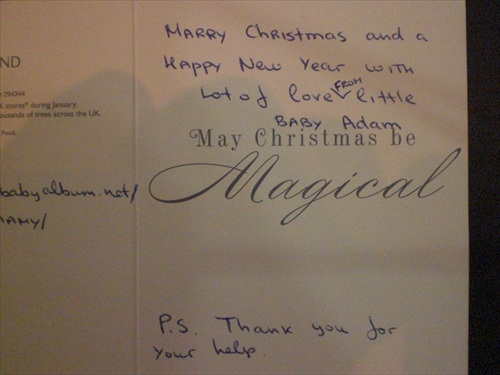 MARRY Christmas and a
HAPPY New Year with
Lot of love FROM little
BABY Adam
May Christmas be
Magical
P.S. Thank you for
your help.
ND
294344
K stores* during January.
ousands of trees across the UK.
Feed.
babyalbum.net/
AMY/